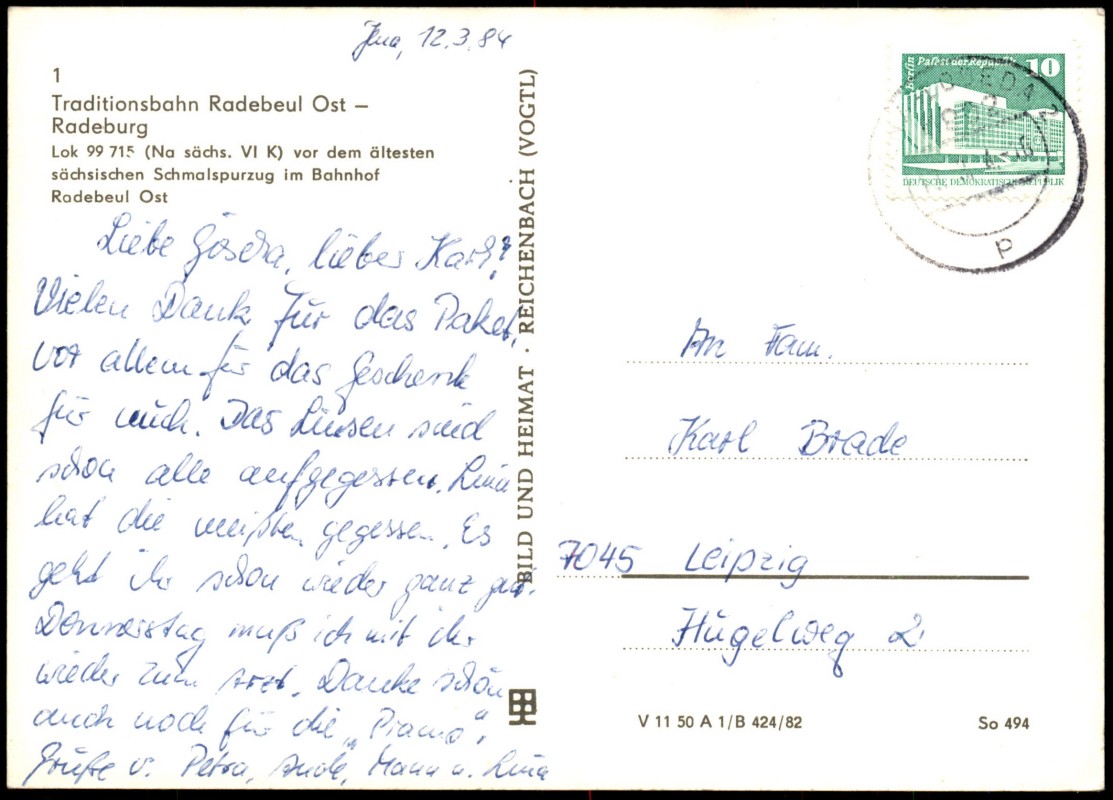 Jena, 12.3.84
1
Traditionsbahn Radebeul Ost –
Radeburg
Lok 99 715 (Na sächs. VI K) vor dem ältesten
sächsischen Schmalspurzug im Bahnhof
Radebeul Ost
Liebe lieber Karl,
Vielen Dank für das Paket,
vor allem für das Geschenk
für mich. Das Linsen sind
schon alle aufgegessen. Luise
hat die meißten gegessen. Es
geht ihr schon wieder ganz gut.
Donnerstag muß ich mit ihr
wieder zum Arzt. Danke schön
auch noch für die
Grüße v. Petra, u.
BILD UND HEIMAT · REICHENBACH (VOGTL)
Berlin Palast der Republik 10
DEUTSCHE DEMOKRATISCHE REPUBLIK
p
An Fam.
Karl Brade
7045 Leipzig
Hügelweg 2
V 11 50 A 1/B 424/82
So 494